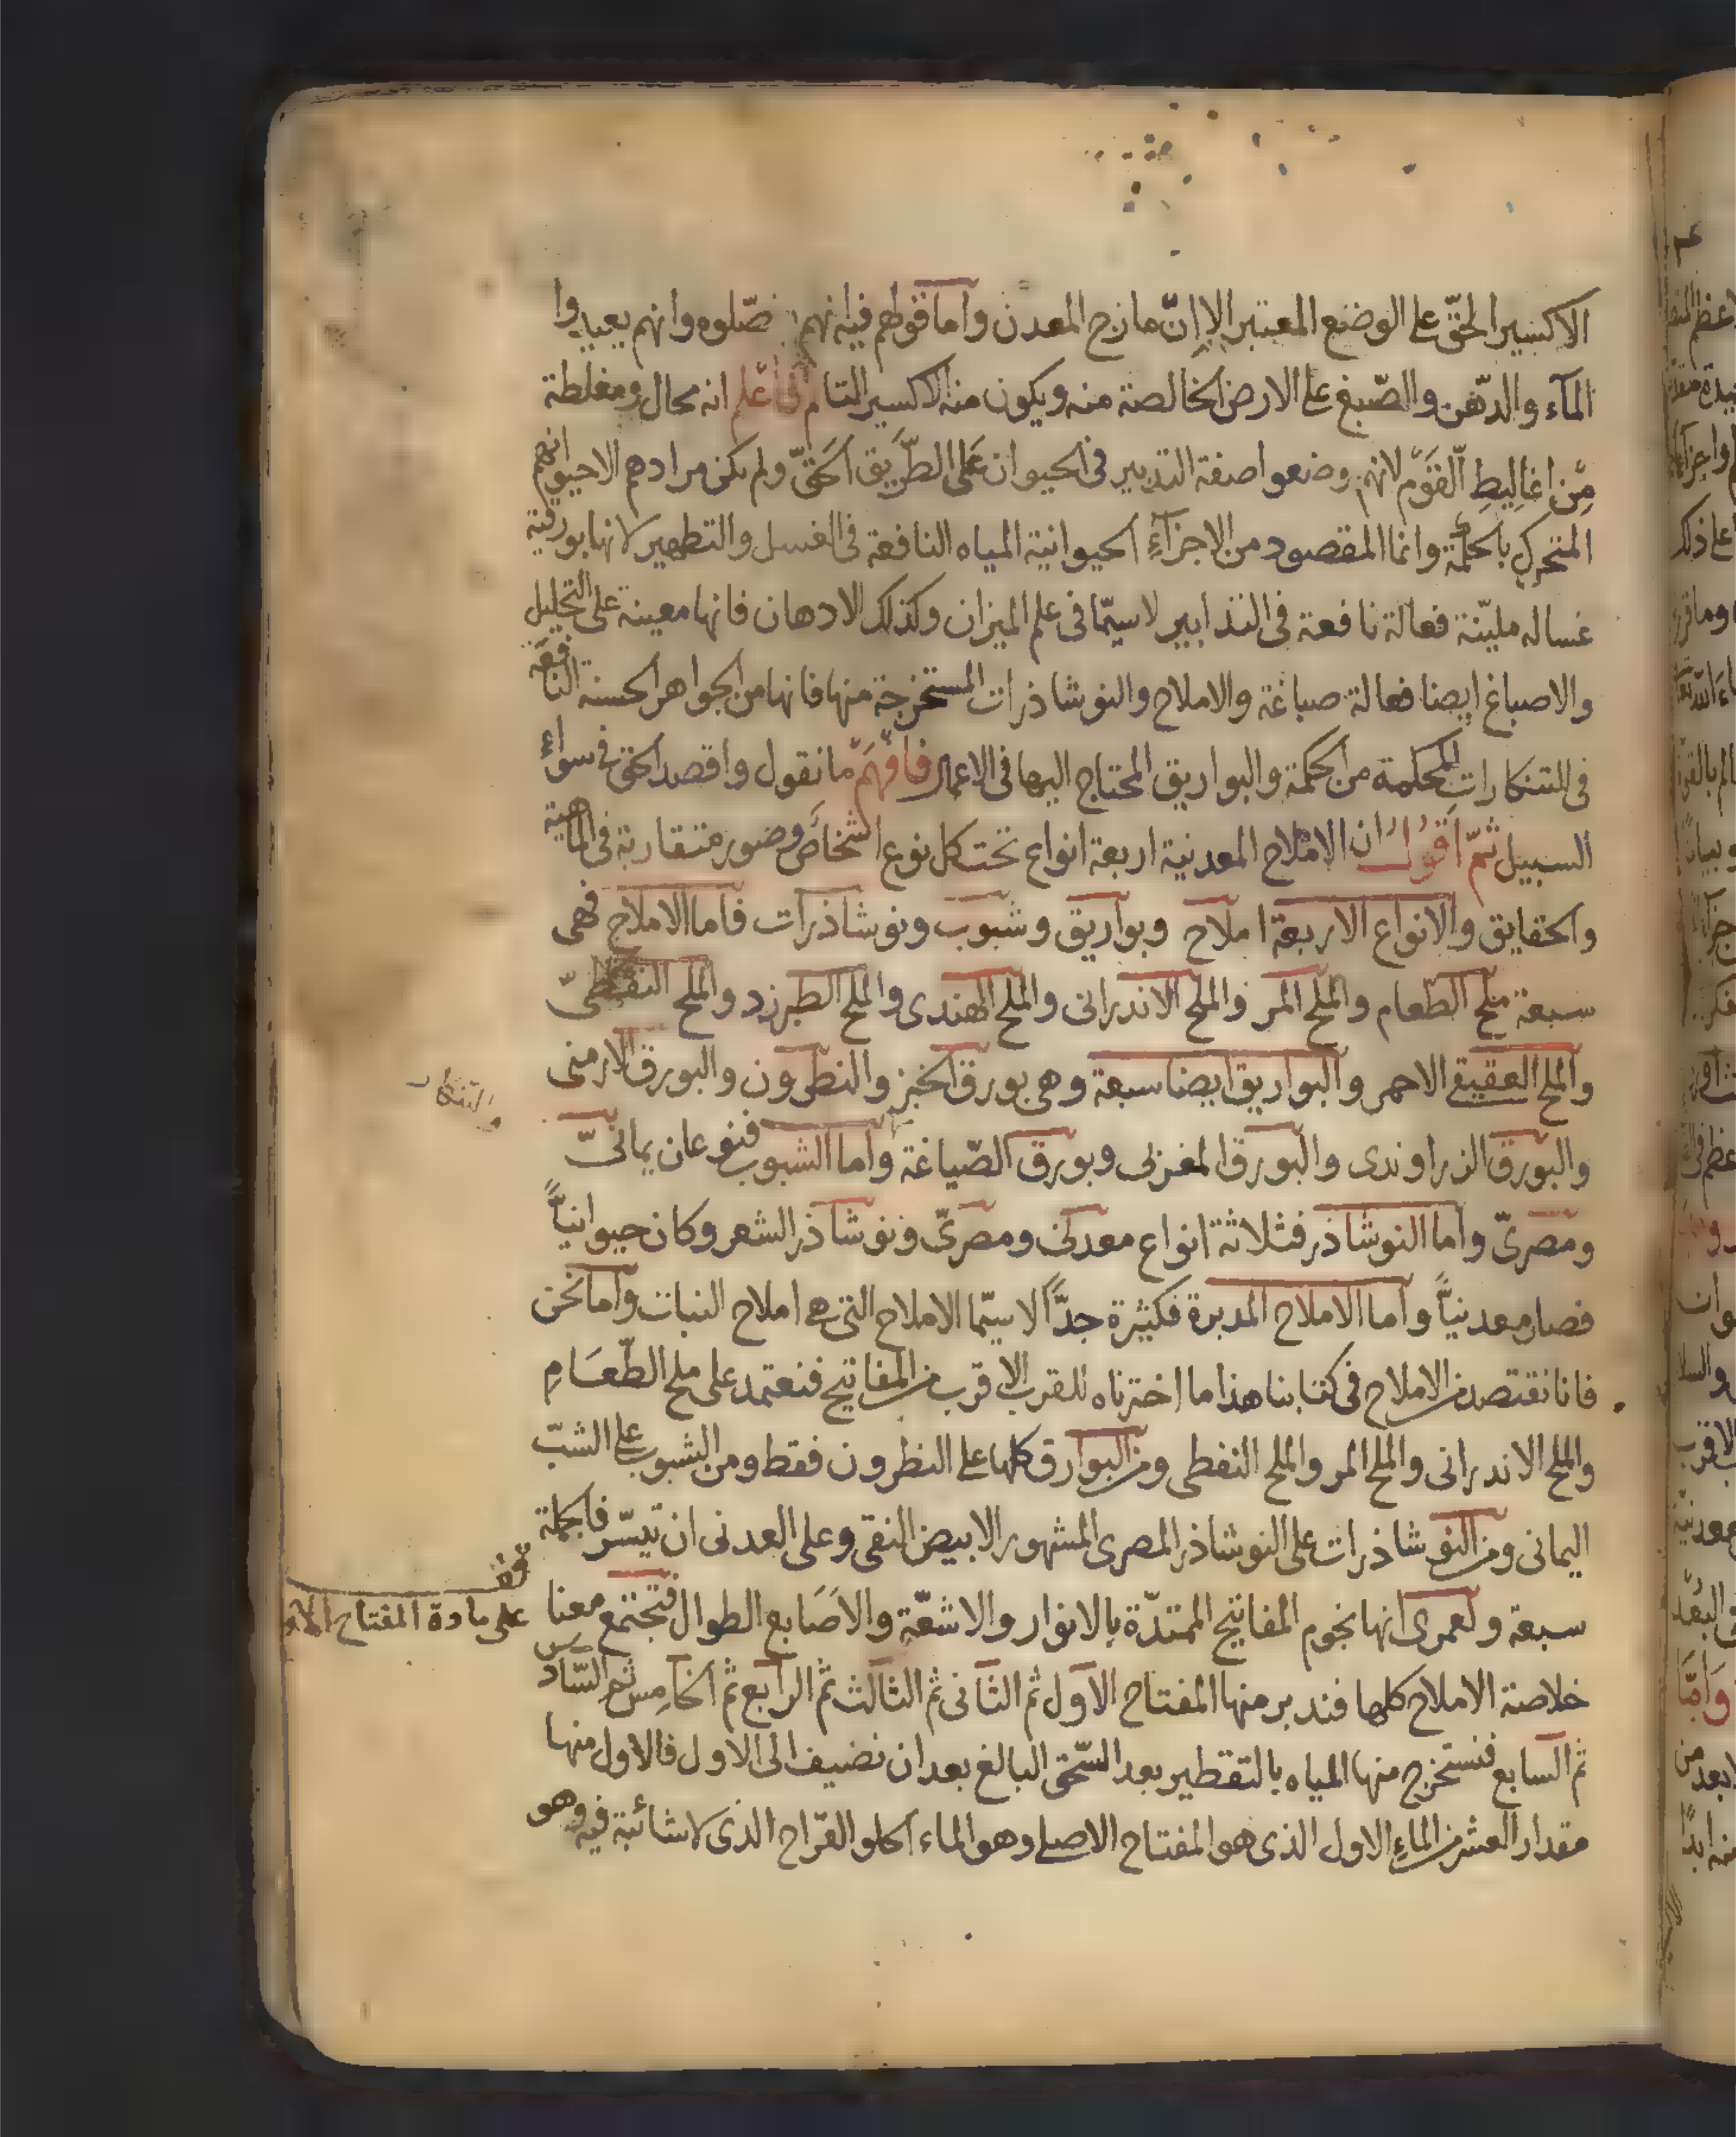 الاكسير الحقّ على الوضع المعتبر الا انّ مازج المعدن واما قولهم فيه انهم فصّلوه وانهم يعيدوا
المآء والدّهن والصّبغ على الارض الخالصة منه ويكون منه الاكسير التام فاعلم انه محال ومغلطة
مِن اغاليطِ القَوم لانهم وضعوا صفة التدبير فى الحيوان عَلى الطَّريق الحَقّ ولم يكن مرادهم الا حيوانهم
المتحرك بالحكمة وانما المقصود من الاجزآءِ الحيوانية المياه النافعة فى الغسل والتطهير لانها بورقية
غساله مليّنة فعالة نافعة فى التدابير لاسيّما فى علم الميزان وكذلك الادهان فانها معينة على التحليل
والاصباغ ايضا فعالة صباغة والاملاح والنوشاذرات المستخرجة منها فانها من الجواهر الحسنة النافعة
فى التنكارات المحكمة من الحكمة والبواريق المحتاج اليها فى الاعمال فافهَم ما نقول واقصد الحق فى سوآءِ
السبيل ثمّ اقول ان الاملاح المعدنية اربعة انواع تحت كل نوع اشخاص وصور متقاربة فى الماهية
والحقايق والانواع الاربعة املاح وبواريق وشبوب ونوشاذرات فاما الاملاح فهى
سبعة ملح الطعام والملح المر والملح الاندرانى والملح الهندى والملح الطبرزد والملح النفطىّ
والملح العقيقى الاحمر والبواريق ايضا سبعة وهى بورق الخبز والنطرون والبورق الارمنى
والتنكار
والبورق الزراوندى والبورق المغربى وبورق الصّياغة واما الشبوب فنوعان يمانىّ
ومصرىّ واما النوشاذر فثلاثة انواع معدنى ومصرىّ ونوشاذر الشعر وكان حيوانيًّا
فصار معدنيًّا واما الاملاح المدبرة فكثيرة جدًّا لاسيّما الاملاح التى هى املاح النبات واما نحن
فانا نقتصد من الاملاح فى كتابنا هذا ما اخترناه للقرب الاقرب من المفاتيح فنعتمد على ملح الطّعَامِ
والملح الاندرانى والملح المر والملح النفطى ومن البوارق كلها على النطرون فقط ومن الشبوب على الشبّ
اليمانى ومن النوشاذرات على النوشاذر المصرى المشهور الابيض النقى وعلى المعدنى ان تيسّر فالجملة
سبعة ولعمرى انها نجوم المفاتيح الممتدّة بالانوار والاشعّة والاصَابع الطوال فتجتمع معنا
قف
على مادة المفتاح الاول
خلاصة الاملاح كلها فندبر منها المفتاح الاول ثم الثانى ثم الثالث ثم الرابع ثم الخامِس ثم السّادس
ثم السابع فنستخرج منها المياه بالتقطير بعد السّحق البالغ بعد ان نضيف الى الاول فالاول منها
مقدار العشر من الماءِ الاول الذى هو المفتاح الاصلى وهو الماء الحلو القّراح الذى لا شائبة فيه وهو